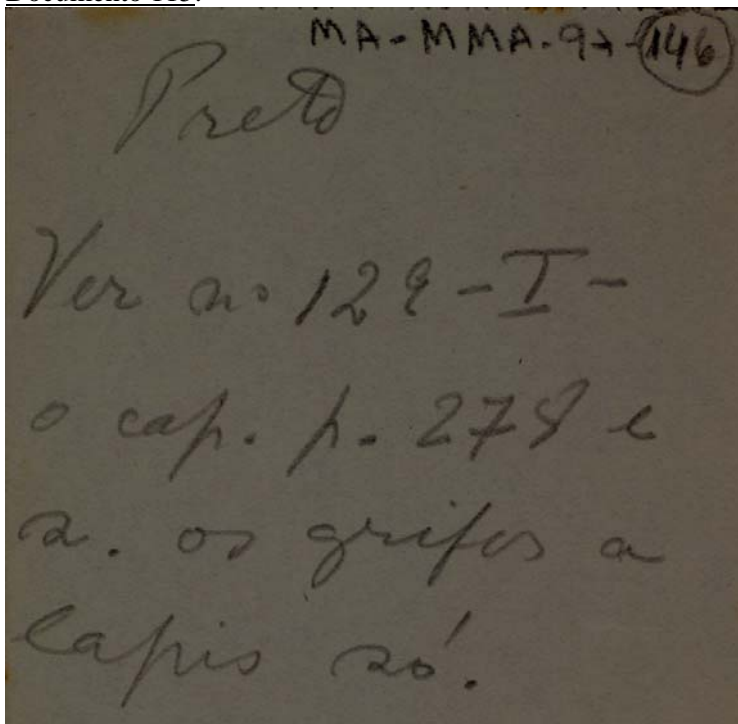 MA-MMA-97-146
Preto
Ver nº 129-I-
o cap. p. 278 e
s. os grifos a
lapis só.